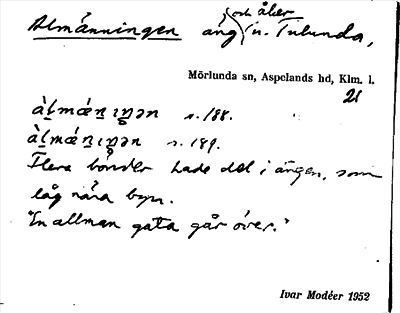 och åker
Almänningen äng n. Tulunda,
Mörlunda sn, Aspelands hd, Klm. l.
21
s. 188.
s. 189.
Flera bönder hade del i ängen, som
låg nära byn.
"En allmän gata går över."
Ivar Modéer 1952